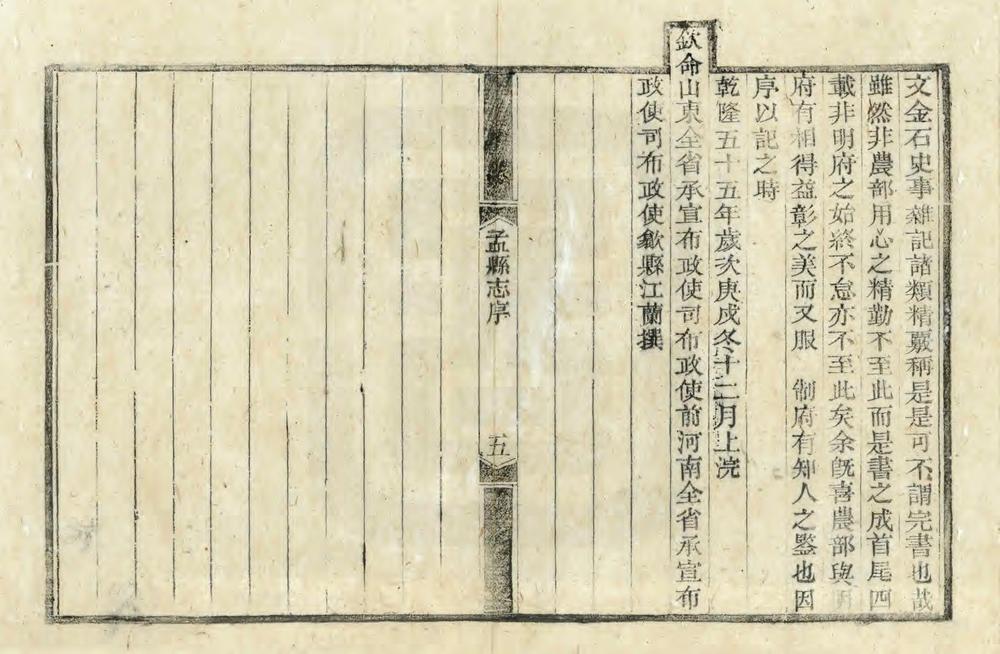 文金石史事雜記諸類精覈稱是是可不謂完書也哉
雖然非農部用心之精勤不至此而是書之成首尾四
載非明府之始終不怠亦不至此矣余旣喜農部與明
府有相得益彰之美而又服　制府有知人之鑒也因
序以記之時
乾隆五十五年歲次庚戌冬十二月上浣
欽命山東全省承宣布政使司布政使前河南全省承宣布
政使司布政使歙縣江蘭撰
孟縣志序
五